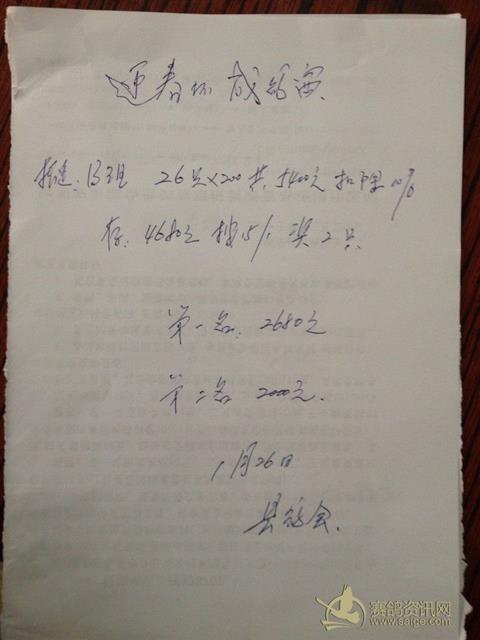 迎春杯成鸽赛
指定: B组 26只×200共5400元扣10%
存: 4680元 按15% 奖2只
第一名: 2680元
第二名 2000元.
1月26日
县鸽会.
赛鸽资讯网
www.saige.com